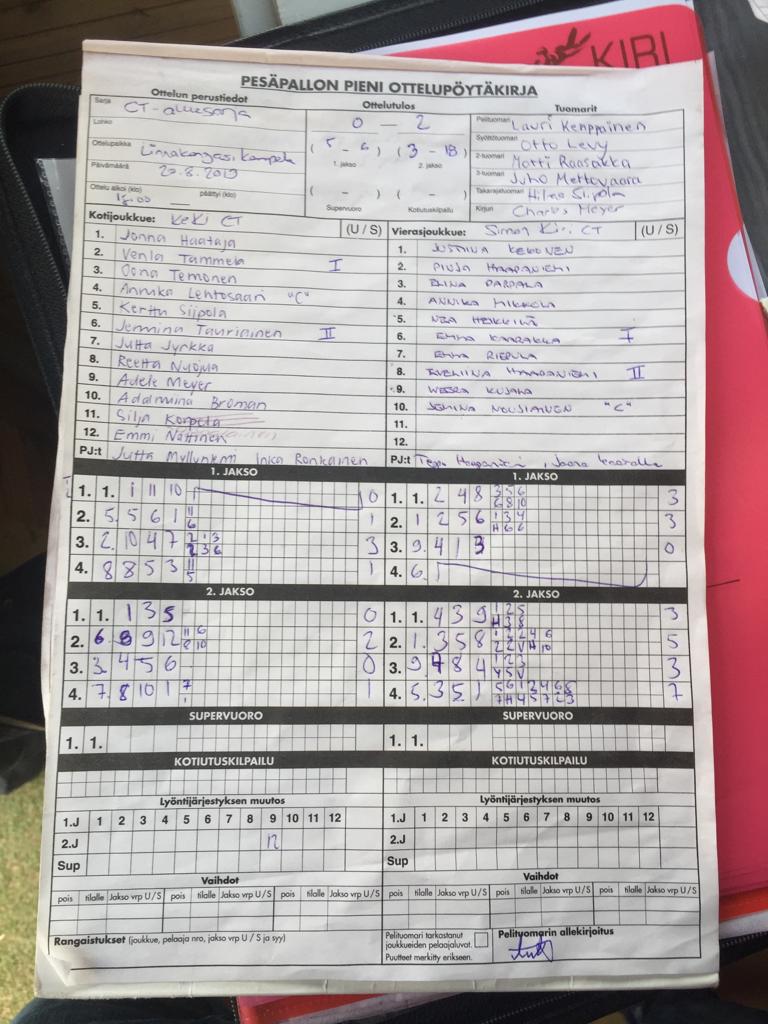 KIRI
PESÄPALLON PIENI OTTELUPÖYTÄKIRJA
Ottelun perustiedot
Ottelutulos
Tuomarit
Sarja CT-aluesarja
Lohko
Ottelupaikka
Päivämäärä
Ottelu alkoi (klo) päättyi (klo)
15.00
0 - 2
(5 - 6) (3 - 18)
1. jakso 2. jakso
( - ) ( - )
Supervuoro Kotiutuskilpailu
Pelituomari Lauri Kemppainen
Syöttötuomari Otto Levy
2-tuomari Matti Raasakka
3-tuomari Juho Mettovaara
Takarajatuomari Siipola
Kirjuri Charles Meyer
Kotijoukkue: KeKi CT (U / S)
1. Jonna Haataja
2. Venla Tammela I
3. Oona Temonen
4. Annuka Lehtosaari "C"
5. Kerttu Siipola
6. Jemmina Tauriainen II
7. Jutta Jyrkkä
8. Reetta Nuojua
9. Adele Meyer
10. Adalmina Broman
11. Silja Korpela
12. Emmi Nättinen
PJ:t Jutta Myllyniemi Inka Ronkainen
Vierasjoukkue: Simon Kiri CT (U / S)
1. JUSTIINA KEMONEN
2. PINJA HAAPANIEMI
3. ELINA PARPALA
4. ANNIKA MIKKOLA
5. NEA HEIKKILÄ
6. EMMA KAARAKKA I
7. EMMA RIEPULA
8. EVELIINA HAAPANIEMI II
9. WEERA KUJALA
10. JEMINA NOUSIAINEN "C"
11.
12.
PJ:t Haapaniemi, Jaana
1. JAKSO
1. 1. 1 11 10 0
2. 5. 5 6 1 11 6 1
3. 2. 10 4 7 2 1 3 2 3 6 3
4. 8 8 5 3 11 5 1
1. JAKSO
1. 1. 2 4 8 3 5 6 6 8 10 3
2. 1 2 5 6 1 3 4 H 6 6 3
3. 9. 4 1 3 0
4. 6.
2. JAKSO
1. 1. 1 3 5 0
2. 6 8 9 12 11 6 8 10 2
3. 3. 4 5 6 0
4. 7. 8 10 1 7 1 1
2. JAKSO
1. 1. 4 3 9 1 2 5 H 3 8 3
2. 1. 3 5 8 5
3. 9 4 8 4 1 2 3 4 5 V 3
4. 5. 3 5 1 7
SUPERVUORO
1. 1.
SUPERVUORO
1. 1.
KOTIUTUSKILPAILU
KOTIUTUSKILPAILU
Lyöntijärjestyksen muutos
1.J 1 2 3 4 5 6 7 8 9 10 11 12
2.J 12
Sup
Lyöntijärjestyksen muutos
1.J 1 2 3 4 5 6 7 8 9 10 11 12
2.J
Sup
Vaihdot
pois tilalle Jakso vrp U / S pois tilalle Jakso vrp U / S pois tilalle Jakso vrp U / S
Vaihdot
pois tilalle Jakso vrp U / S pois tilalle Jakso vrp U / S pois tilalle Jakso vrp U / S
Rangaistukset (joukkue, pelaaja nro, jakso vrp U / S ja syy)
Pelituomari tarkastanut
joukkueiden pelaajaluvat.
Puutteet merkitty erikseen.
Pelituomarin allekirjoitus